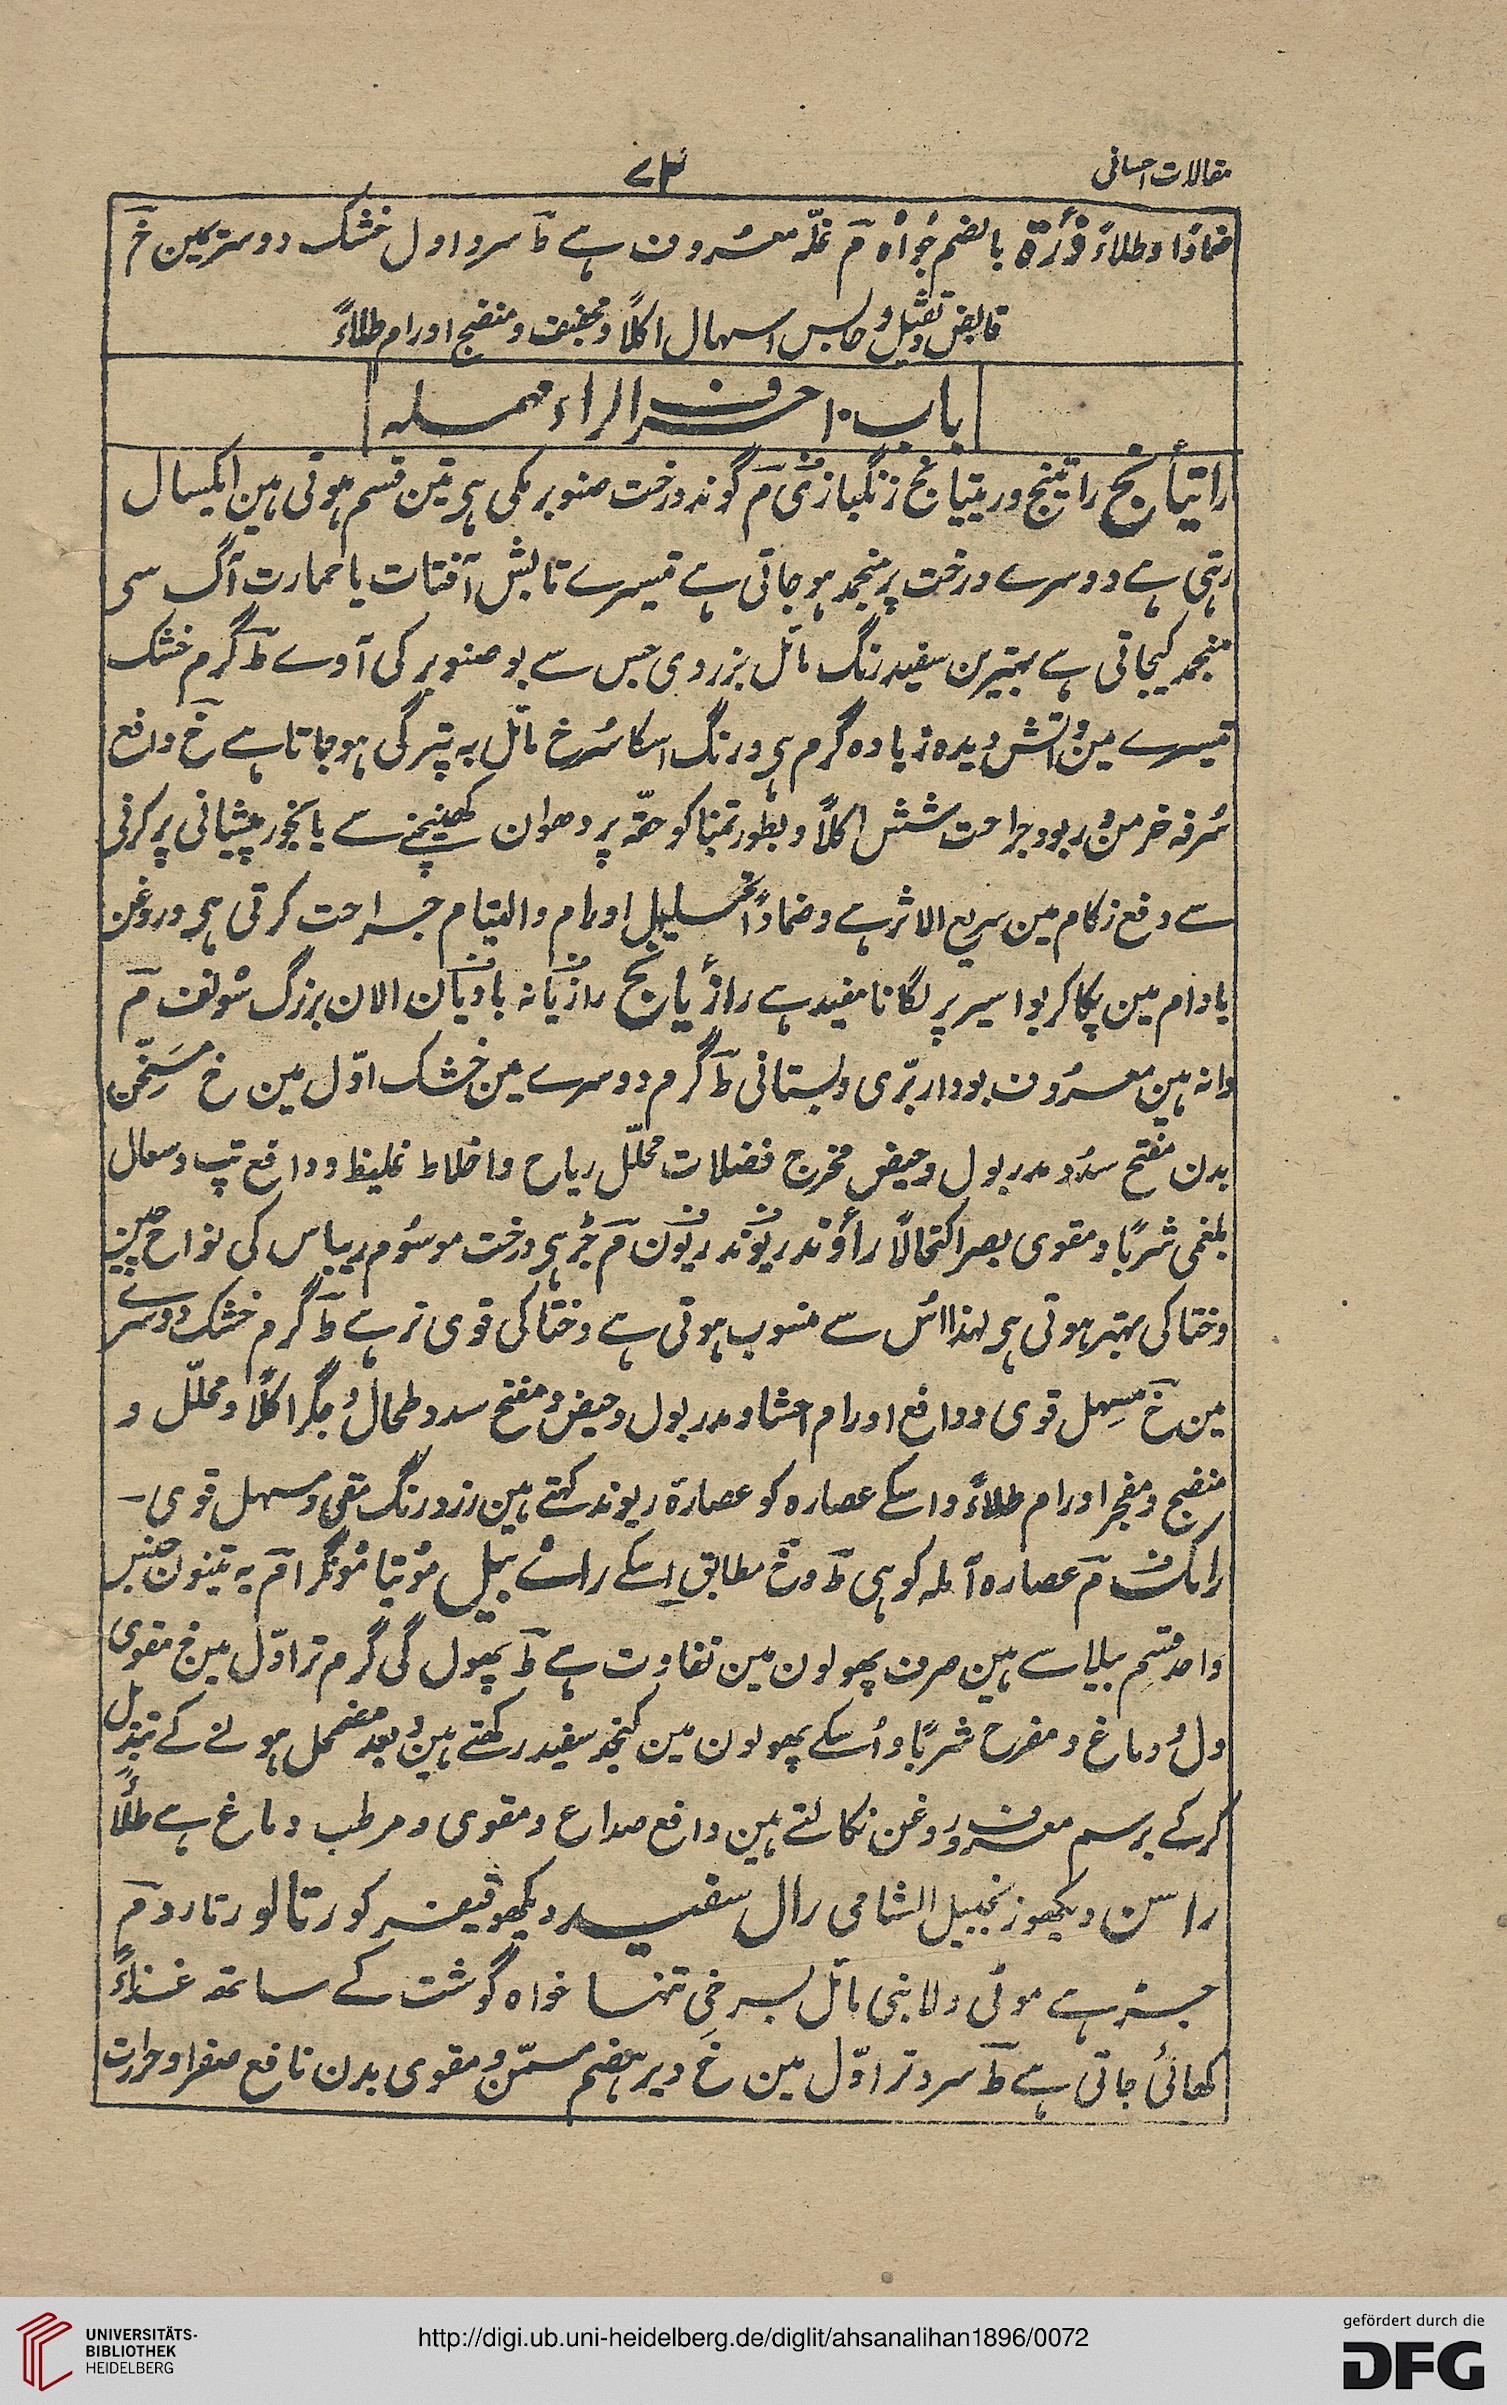 مقالات احسانی
۷۳
ضمادًا و طلاءً ذُرَة بالضم جُواہ م غلّہ معروف ہے ط سرد اول خشک دوسریمین خ
قابض و ثقیل و حابس اسہال اکلًا و مجفف و منضج اورام طلاءً
باب ۱۰ حرف الراء مہملہ
راتیانج راتینج و ریتیانج زنگباری م گوند درخت صنوبر کی ہی تین قسم ہوتی ہین ایک سیال
رہتی ہے دوسرے درخت پر منجمد ہو جاتی ہے تیسرے تابش آفتاب یا حرارت آگ سی
منجمد کیجاتی ہے بہترین سفید رنگ مائل بزردی جس سے بو صنوبر کی آوے ط گرم خشک
تیسرے مین و آتش دیدہ زیادہ گرم ہی و رنگ اسکا سُرخ مائل بہ تیرگی ہو جاتا ہے خ دافع
سُرفہ مزمن و ربو و جراحت شش اکلًا و بطور تمباکو حقّہ پر دھوان کھینچنے سے یا بخور پیشانی پر کرنی
سے دفع زکام مین سریع الاثر ہے و ضمادًا تحلیل اورام و التیام جراحت کرتی ہی و روغن
بادام مین پکا کر بواسیر پر لگانا مفید ہے رازیانج رازیانہ بادیان الان بزرگ سونف م
دانہ ہین معروف بودار برّی و بستانی ط گرم دوسرے مین خشک اوّل مین خ مسخّن
بدن مفتح سدُد مدر بول و حیض مخرج فضلات محلّل ریاح و اخلاط غلیظ و دافع تپ و سعال
بلغمی شربًا و مقوی بصر اکتحالًا راوند ریوند ریون م جڑ ہی درخت موسوم ریباس کی نواح چین
و ختا کی بہتر ہوتی ہی لہذا اُس سے منسوب ہوتی ہے و ختا کی قوی تر ہے ط گرم خشک دوسرے
مین خ مسہل قوی و دافع اورام احشا و مدر بول و حیض و مفتح سدد طحال و جگر اکلًا و محلّل و
منضج و مفجر اورام طلاءً و اسکے عصارہ کو عصارۂ ریوند کہتے ہین زرد رنگ مقی و مسہل قوی۔
رامک م عصارہ آملہ کو ہی ط و خ مطابق اسکے راے بیل مُوتیا مُونگرا م یہ تینون جنس
واحد قسم بیلا سے ہین صرف پھولون مین تفاوت ہے ط پھول گی گرم تر اوّل مین خ مقوی
دل و دماغ و مفرح شربًا و اُسکے پھولون مین کنجد سفید رکھتے ہین و بعد مضمحل ہونے کے تبدیل
کر کے برسم معروف روغن نکالتے ہین دافع صداع و مقوی و مرطب دماغ ہے طلاءً
راسن دیکھو زنجبیل الشامی رال سفید دیکھو قیقہر کو رتالو رتارو م
جڑ ہے موٹی و لانبی مائل بسرخی تنہا خواہ گوشت کے ساتھ غذاءً
کھائی جاتی ہے ط سرد تر اوّل مین خ دیر ہضم مسمّن و مقوی بدن نافع صفرا و حرارت
UNIVERSITÄTS-
BIBLIOTHEK
HEIDELBERG
http://digi.ub.uni-heidelberg.de/diglit/ahsanalihan1896/0072
gefördert durch die
DFG